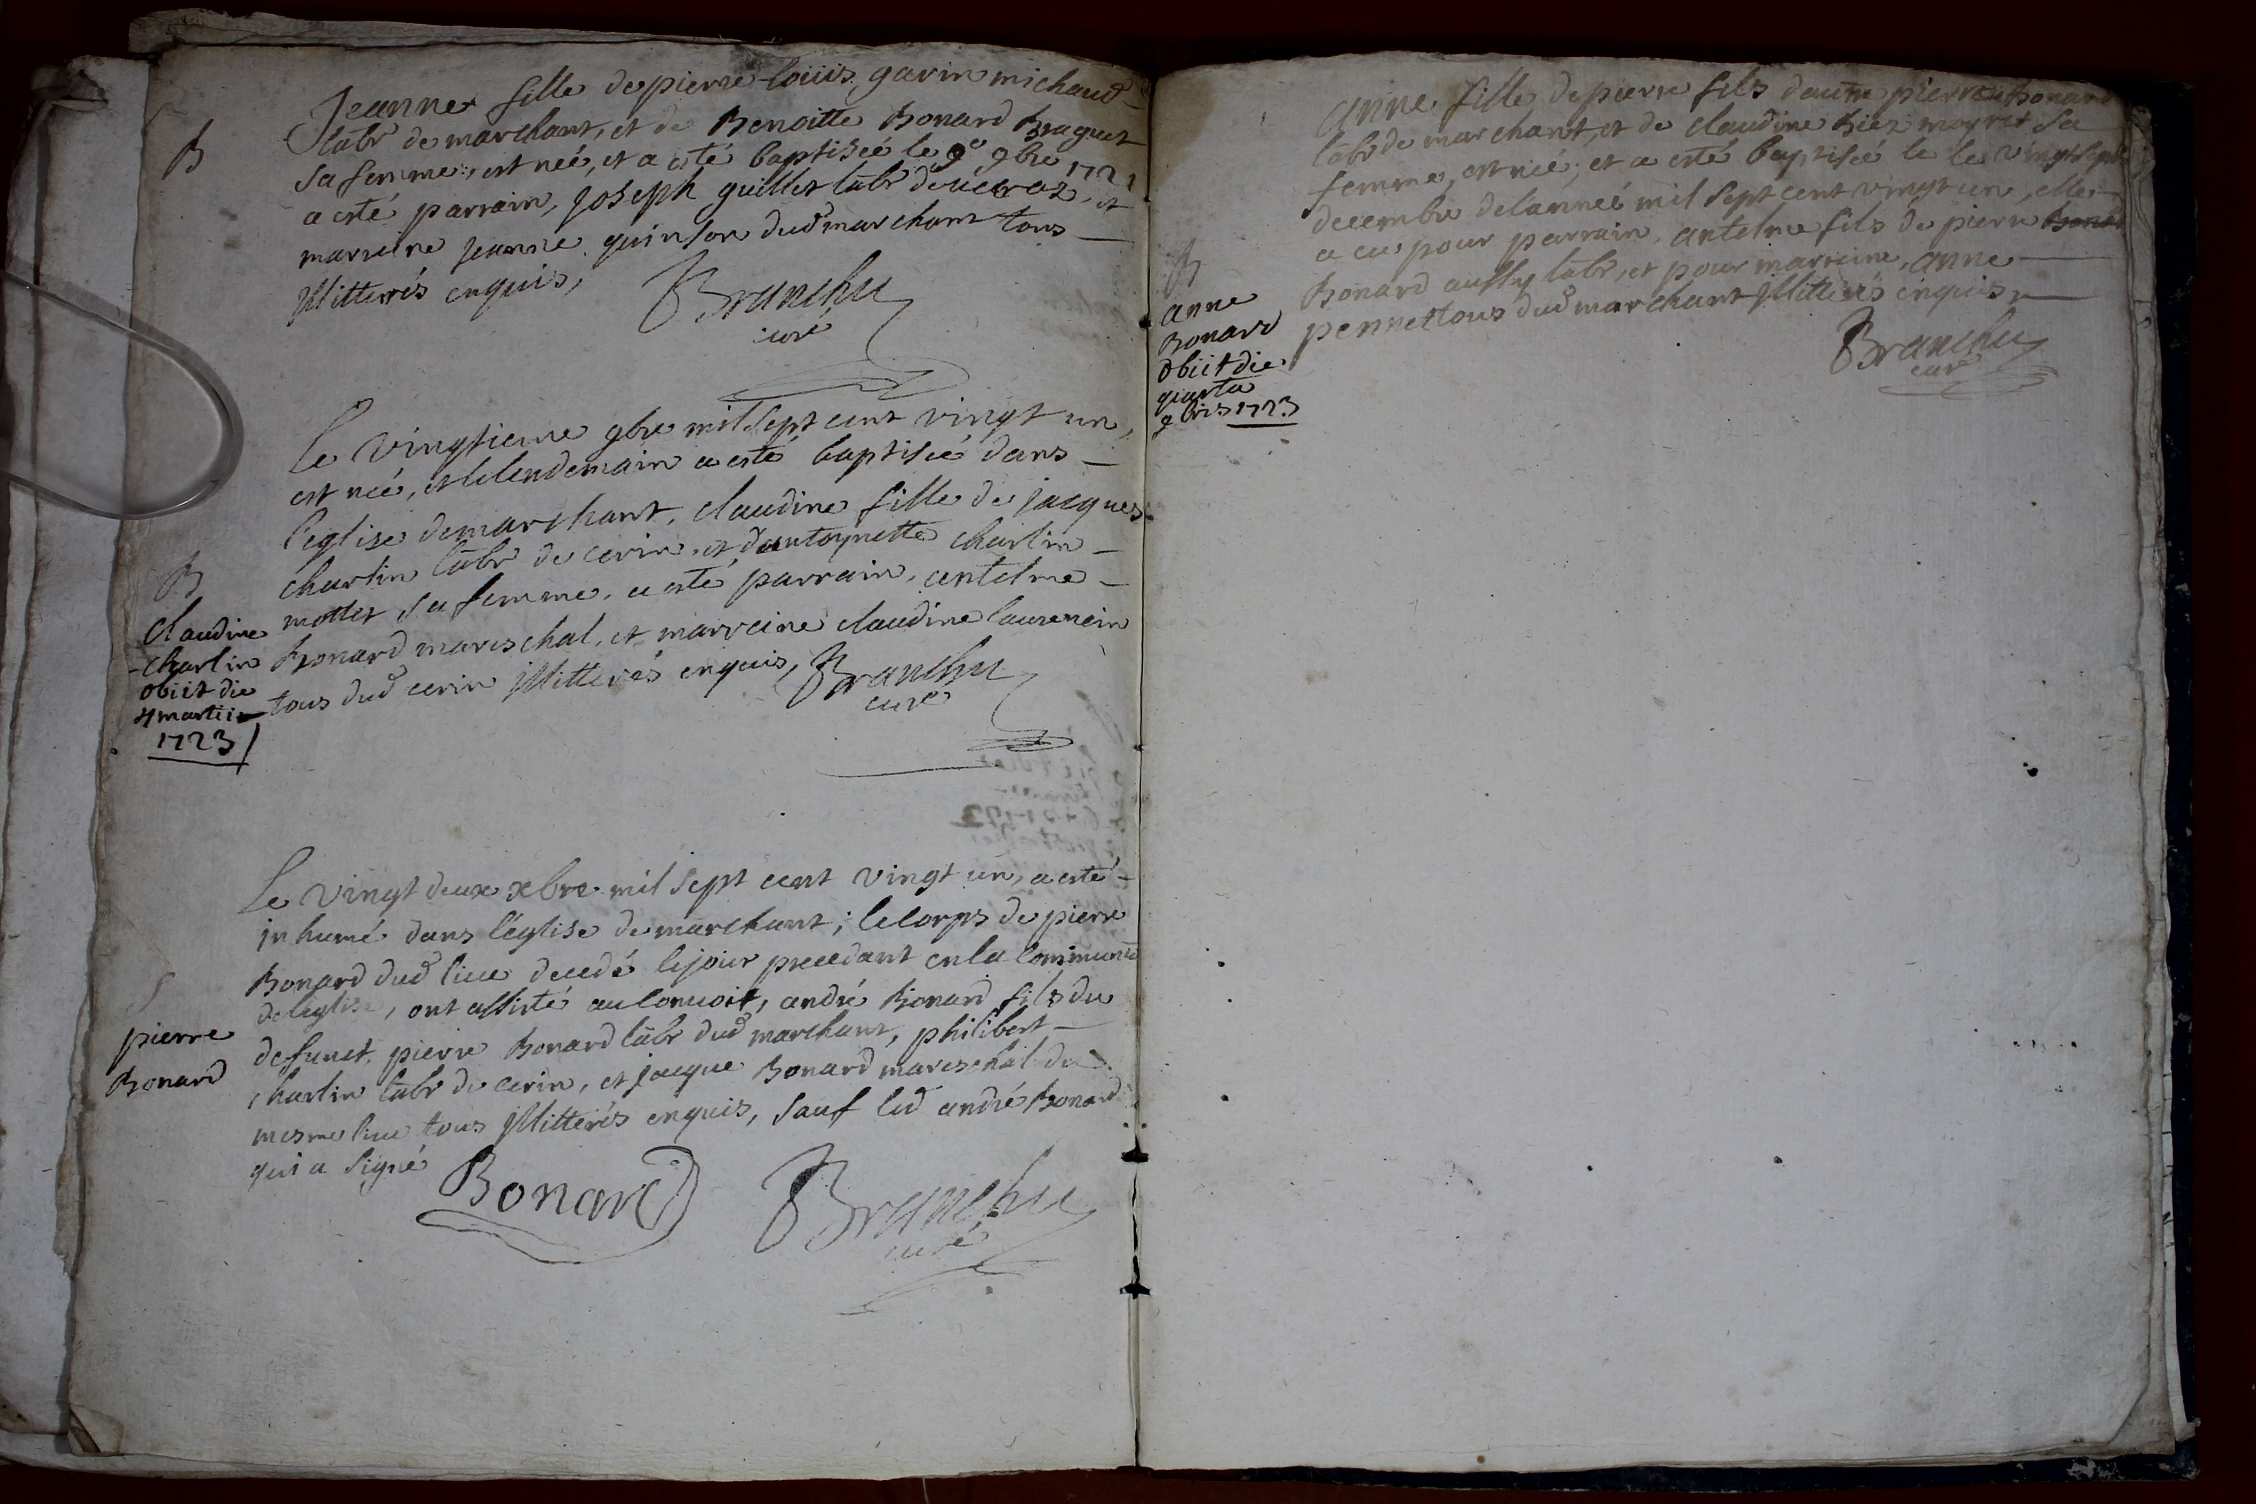 B
Jeanne fille de pierre loüis garin michaud
labr de marchant, et de Benoitte Bonard Braguet
sa femme, est neé, et a esté baptiseé le 9e 9bre 1721
a esté parrain, Joseph guillet labr et
marreine jeanne quinson dud marchant tous
illitterés enquis,
Branchu
curé
B
claudine
charlin
obiit die
4 martii
1723
Le vingtieme 9bre mil sept cent vingt un,
est neé, et lelendemain a esté baptiseé dans
l'eglise demarchant, claudine fille de jacques
charlin labr de cerin, et d'antoynette charlin
mottet sa femme, a esté parrain, antelme
Bonard mareschal, et marreine claudine laurencin
tous dud cerin illitterés enquis,
Branchu
curé
S
pierre
Bonard
Le vingt deux xbre mil sept cent vingt un, a esté
inhumé dans l'église de marchant; le corps de pierre
Bonard dud lieu decedé le jour precedant en la communion
de leglise, ont assisté au convoit, andré Bonard fils du
defunct, pierre Bonard labr dud marchant, philibert
charlin labr de cerin, et jacque Bonard mareschal du
mesme lieu tous illitterés enquis, sauf led andré Bonard
qui a signé
Bonard
Branchu
curé
B
anne
Bonard
obiit die
quarta
9bris 1723
anne fille de pierre fils dautre pierre Bonard
labr de marchant, et de claudine Biez mayret sa
femme, est neé, et a esté baptiseé le le vingt sept
decembre de lanneé mil sept cent vingt un, elle
a eu pour parrain, antelme fils de pierre Bonard
Bonard aussy labr, et pour marreine, anne
pennet tous dud marchant illitterés enquis
Branchu
curé